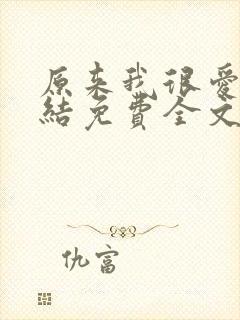 原来我很爱
結免費全文
仇富